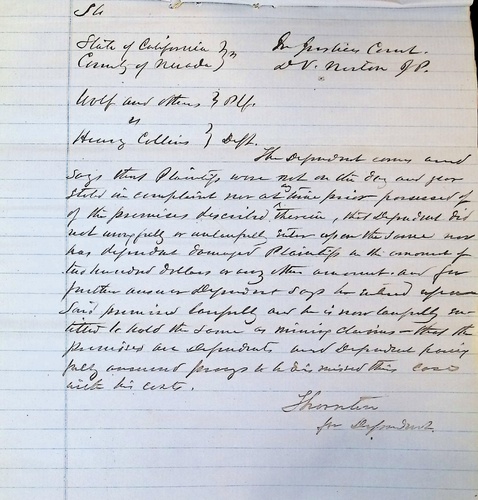 State of California } ss In Justices Court.
County of Nevada } D. V. Norton J.P.
Wolf and others } Plfs.
vs
Henry Collins } Deft.
The Defendant comes and
says that Plaintiffs were not on the day and year
stated in complaint nor at any time prior possessed of
of the premises described therein, that Defendant did
not wrongfully or unlawfully enter upon the same nor
has defendant damaged Plaintiffs in the amount of
two hundred dollars or any other amount. and for
further answer Defendant says he entered upon
said premises lawfully and he is now lawfully en-
titled to hold the same as mining claims - that the
premises are Defendants and Defendant having
fully answered prays to be dismissed this Court
with his costs.
Thornton
for Defendant.